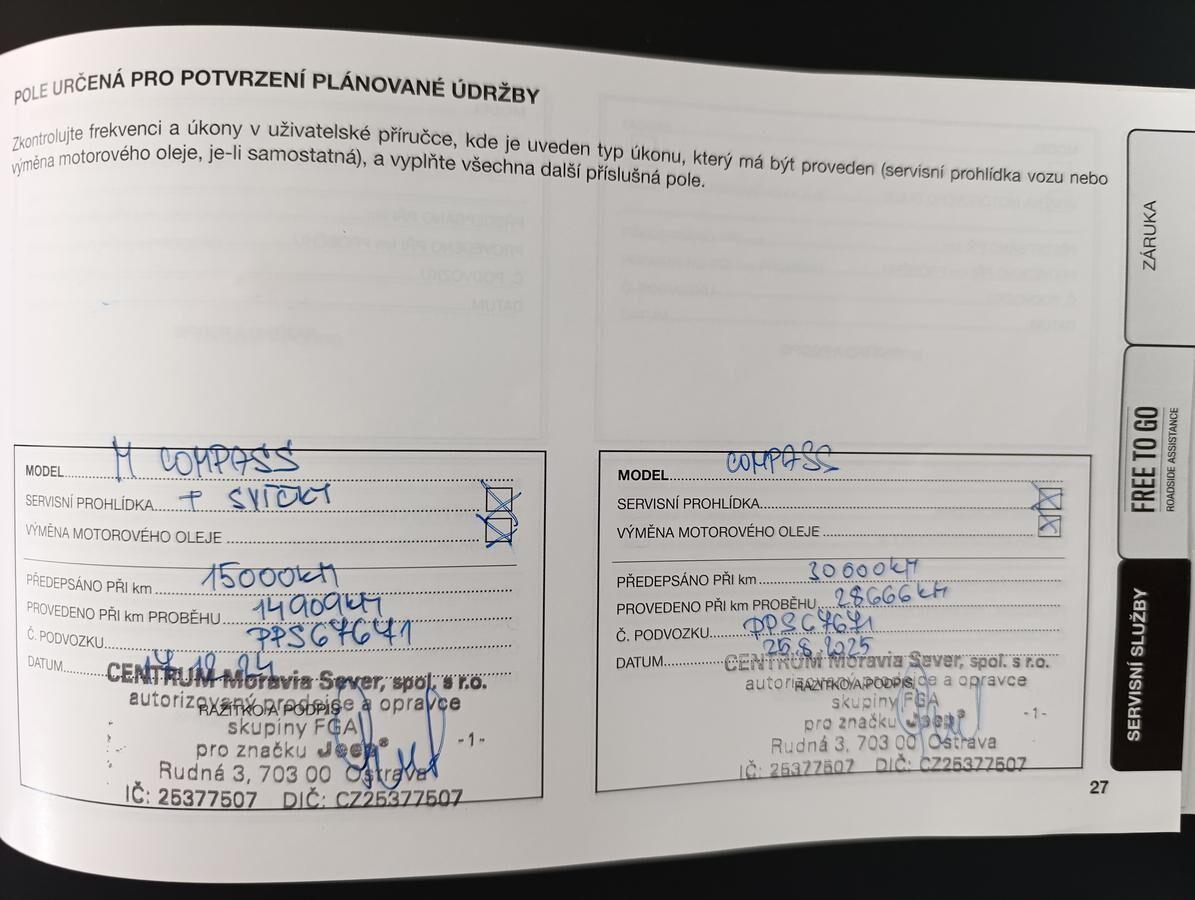 POLE URČENÁ PRO POTVRZENÍ PLÁNOVANÉ ÚDRŽBY
Zkontrolujte frekvenci a úkony v uživatelské příručce, kde je uveden typ úkonu, který má být proveden (servisní prohlídka vozu nebo
výměna motorového oleje, je-li samostatná), a vyplňte všechna další příslušná pole.
MODEL M COMPASS
SERVISNÍ PROHLÍDKA + SVÍČKY
VÝMĚNA MOTOROVÉHO OLEJE
PŘEDEPSÁNO PŘI km 15000KM
PROVEDENO PŘI km PROBĚHU 14909KM
Č. PODVOZKU PPS67671
DATUM 12.24
CENTRUM Moravia Sever, spol. s r.o.
autorizovaný prodejce a opravce
RAZÍTKO A PODPIS
skupiny FGA
pro značku Jeep®
-1-
Rudná 3, 703 00 Ostrava
IČ: 25377507 DIČ: CZ25377507
MODEL COMPASS
SERVISNÍ PROHLÍDKA
VÝMĚNA MOTOROVÉHO OLEJE
PŘEDEPSÁNO PŘI km 30000KM
PROVEDENO PŘI km PROBĚHU 28666KM
Č. PODVOZKU PPS67671
DATUM 25.8.2025
CENTRUM Moravia Sever, spol. s r.o.
autorizovaný prodejce a opravce
RAZÍTKO A PODPIS
skupiny FGA
pro značku Jeep®
-1-
Rudná 3, 703 00 Ostrava
IČ: 25377507 DIČ: CZ25377507
27
ZÁRUKA
FREE TO GO
ROADSIDE ASSISTANCE
SERVISNÍ SLUŽBY